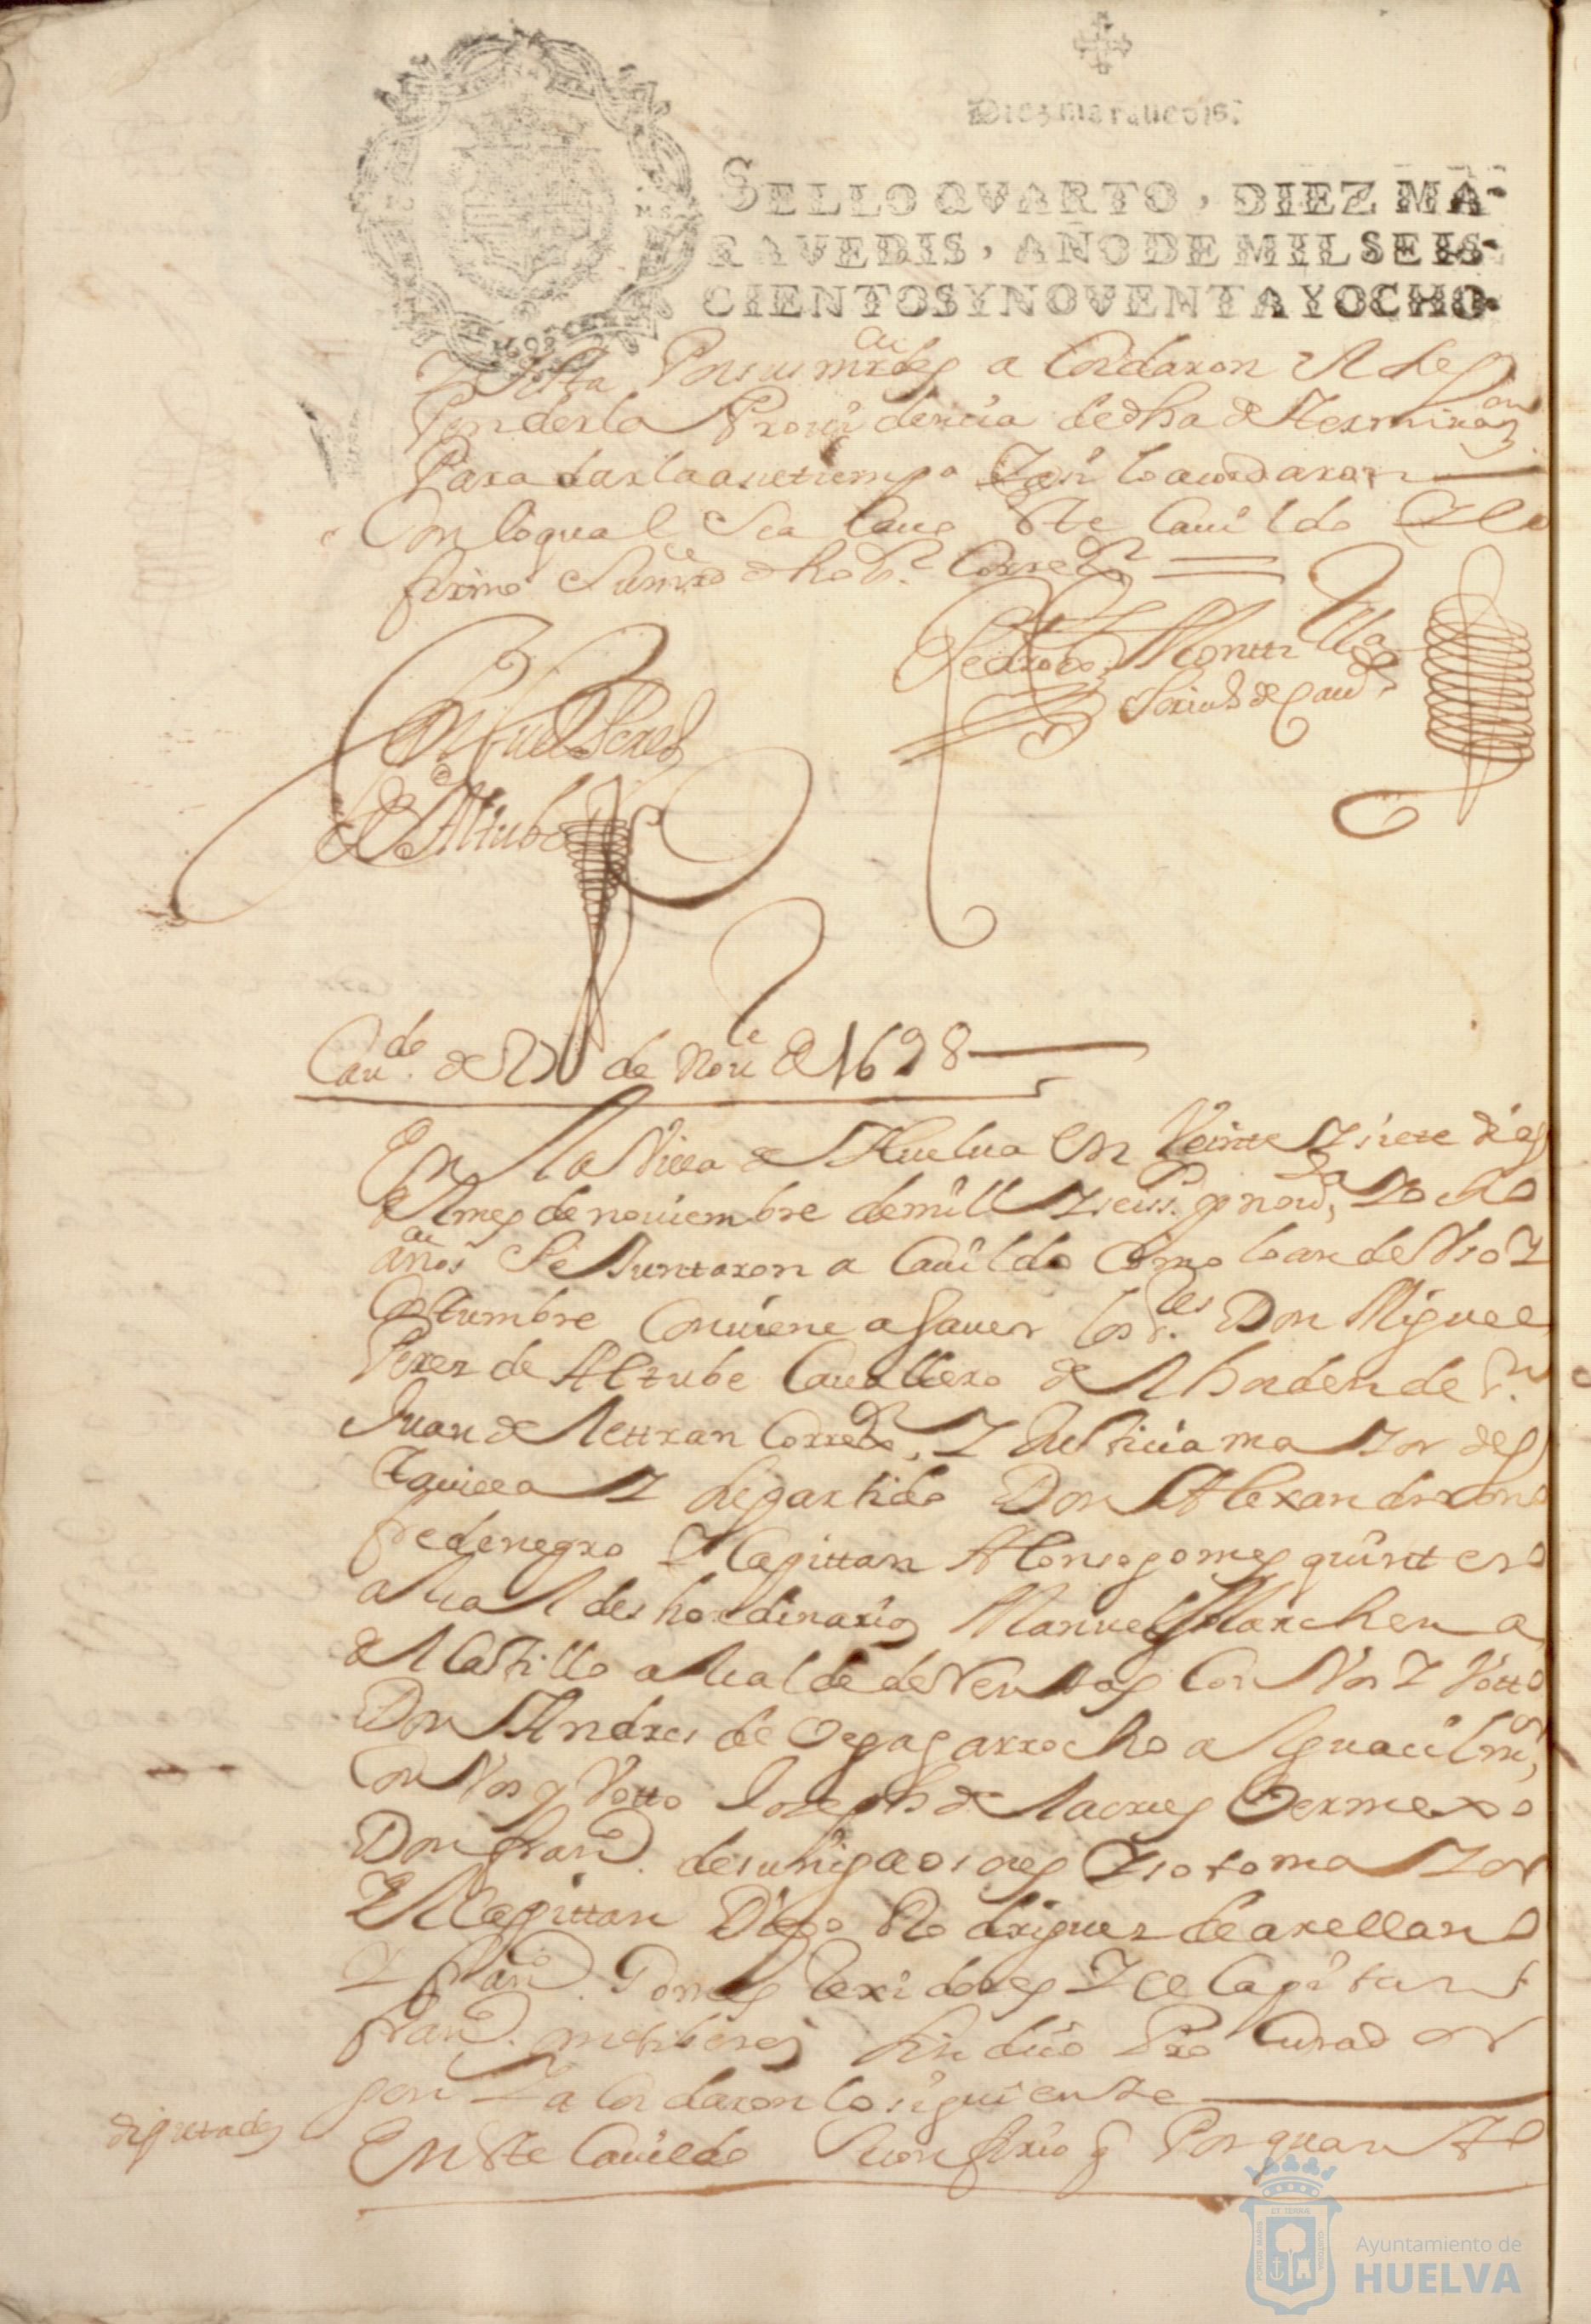 Diez maravedis.
SELLO QVARTO, DIEZ MA-
RAVEDIS, AÑO DE MIL SEIS-
CIENTOS Y NOVENTA Y OCHO.
1698
Y Vista Por sus mrdes a Cordaron
Penderla Providencia dedha determinaon
Para darla a su tiempo Y asi lo acordaron
Con loqual Sea Cavo Este Cavildo Y lo
firmo Sumrd dho Sr Corredor
Miguel Perez
de Alzube
Pedro de Montilla
de Cavdo
Cavdo de 27 de Nove de 1698
En la Villa de Huelva En Veinte Y siete dias
del mes de noviembre de mill Y seissos y novta Y ocho
años Se Juntaron a Cavildo Como loan de Vso Y
Costumbre Conviene a Saver los Sres Don Miguel
Perez de Alzube Cavallero del horden de Sn
Juan de Lettran Corredor Y Justicia maYor des
ta villa Y departido Don Alexandro
de negro Y Capittan Alonso gomes quintero
alcaldes hordinarios Manuel Marchena
del Castillo alcalde de Con Vos Y Votto
Don Andres de Vega garrocho alguacil mr
Con Vos y Votto Joseph de la cruz Vermexo
Don Franco de suñiga Y sotomaYor
El Capittan Diego Rodriguez de arellano
Y Franco Gomes Rexidores Y el Capitan
Franco Sindico Procurador
genl Y a Cordaron lo siguiente
diputados
En Este Cavildo Se confirio q Por quanto
Ayuntamiento de
HUELVA